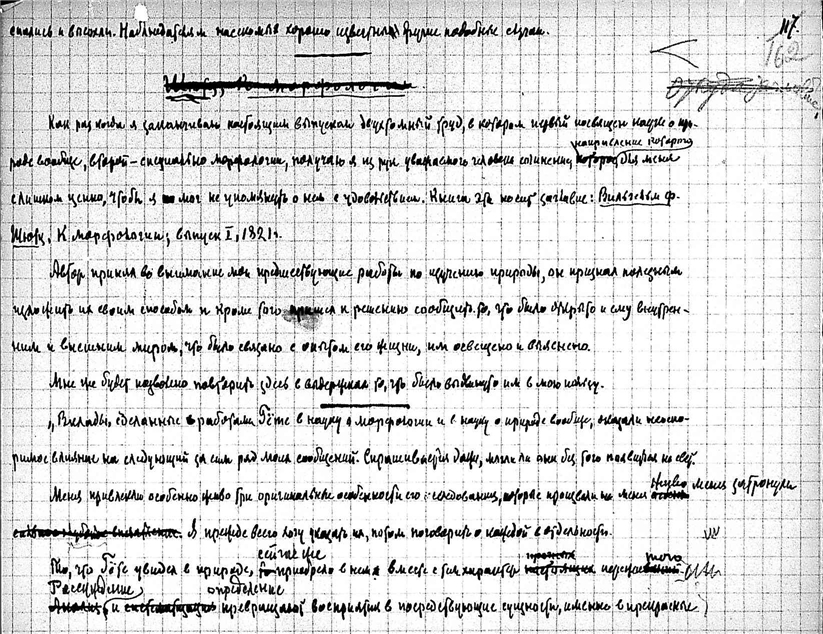 спались и высохли. Наблюдателям насекомых хорошо известны другие подобные случаи.
117.
162
Шютц, К морфологии
Как раз когда я заканчиваю настоящим выпуском двухтомный труд, в котором первый посвящен науке о при-
роде вообще, второй – специально морфологии, получаю я из рук уважаемого человека сочинение,
направление которого
которое для меня
слишком ценно, чтобы я мог не упомянуть о нем с удовольствием. Книга эта носит заглавие: Вильгельм ф.
Шютц. К морфологии; выпуск I, 1821 г.
Автор принял во внимание мои предшествующие работы по изучению природы, он признал полезным
изложить их своим способом и кроме того пришел к решению сообщить то, что было открыто и ему внутрен-
ним и внешним миром, что было связано с опытом его жизни, им освещено и выяснено.
Мне же будет позволено повторить здесь в выдержках то, что было выдвинуто им в мою пользу.
„Вклады, сделанные работами Гёте в науку о морфологии и в науку о природе вообще, оказали неоспо-
римое влияние на следующий за сим ряд моих сообщений. Спрашивается даже, могли ли они без того появиться на свет.
живо меня затронули
Меня привлекли особенно живо три оригинальные особенности его исследования, которые на меня
Я прежде всего хочу указать их, потом поговорить о каждой в отдельности.
сейчас же
То, что Гёте увидел в природе, приобрело в нем вместе с тем характер
Рассуждение определение
Анализ и превращают восприятия в посредствующие сущности, именно в прекрасные